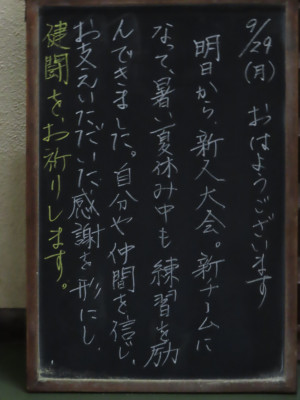 9/29(月) おはようございます
明日から、新人大会。新チームに
なって、暑い夏休み中も練習を励
んできました。自分や仲間を信じ、
お支えいただいた感謝を形にし、
健闘を、お祈りします。